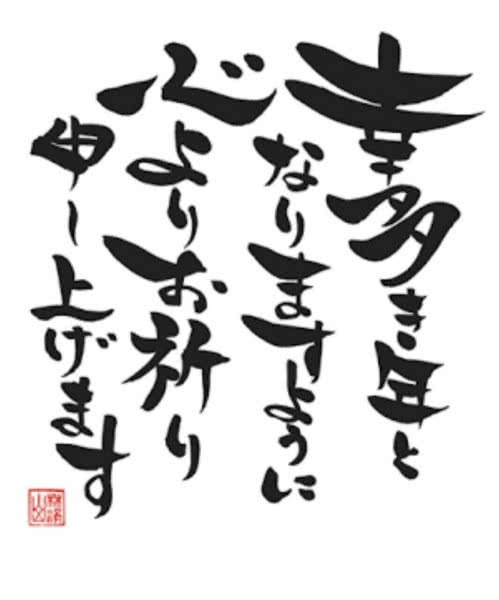 幸多き年と
なりますように
心よりお祈り
申し上げます